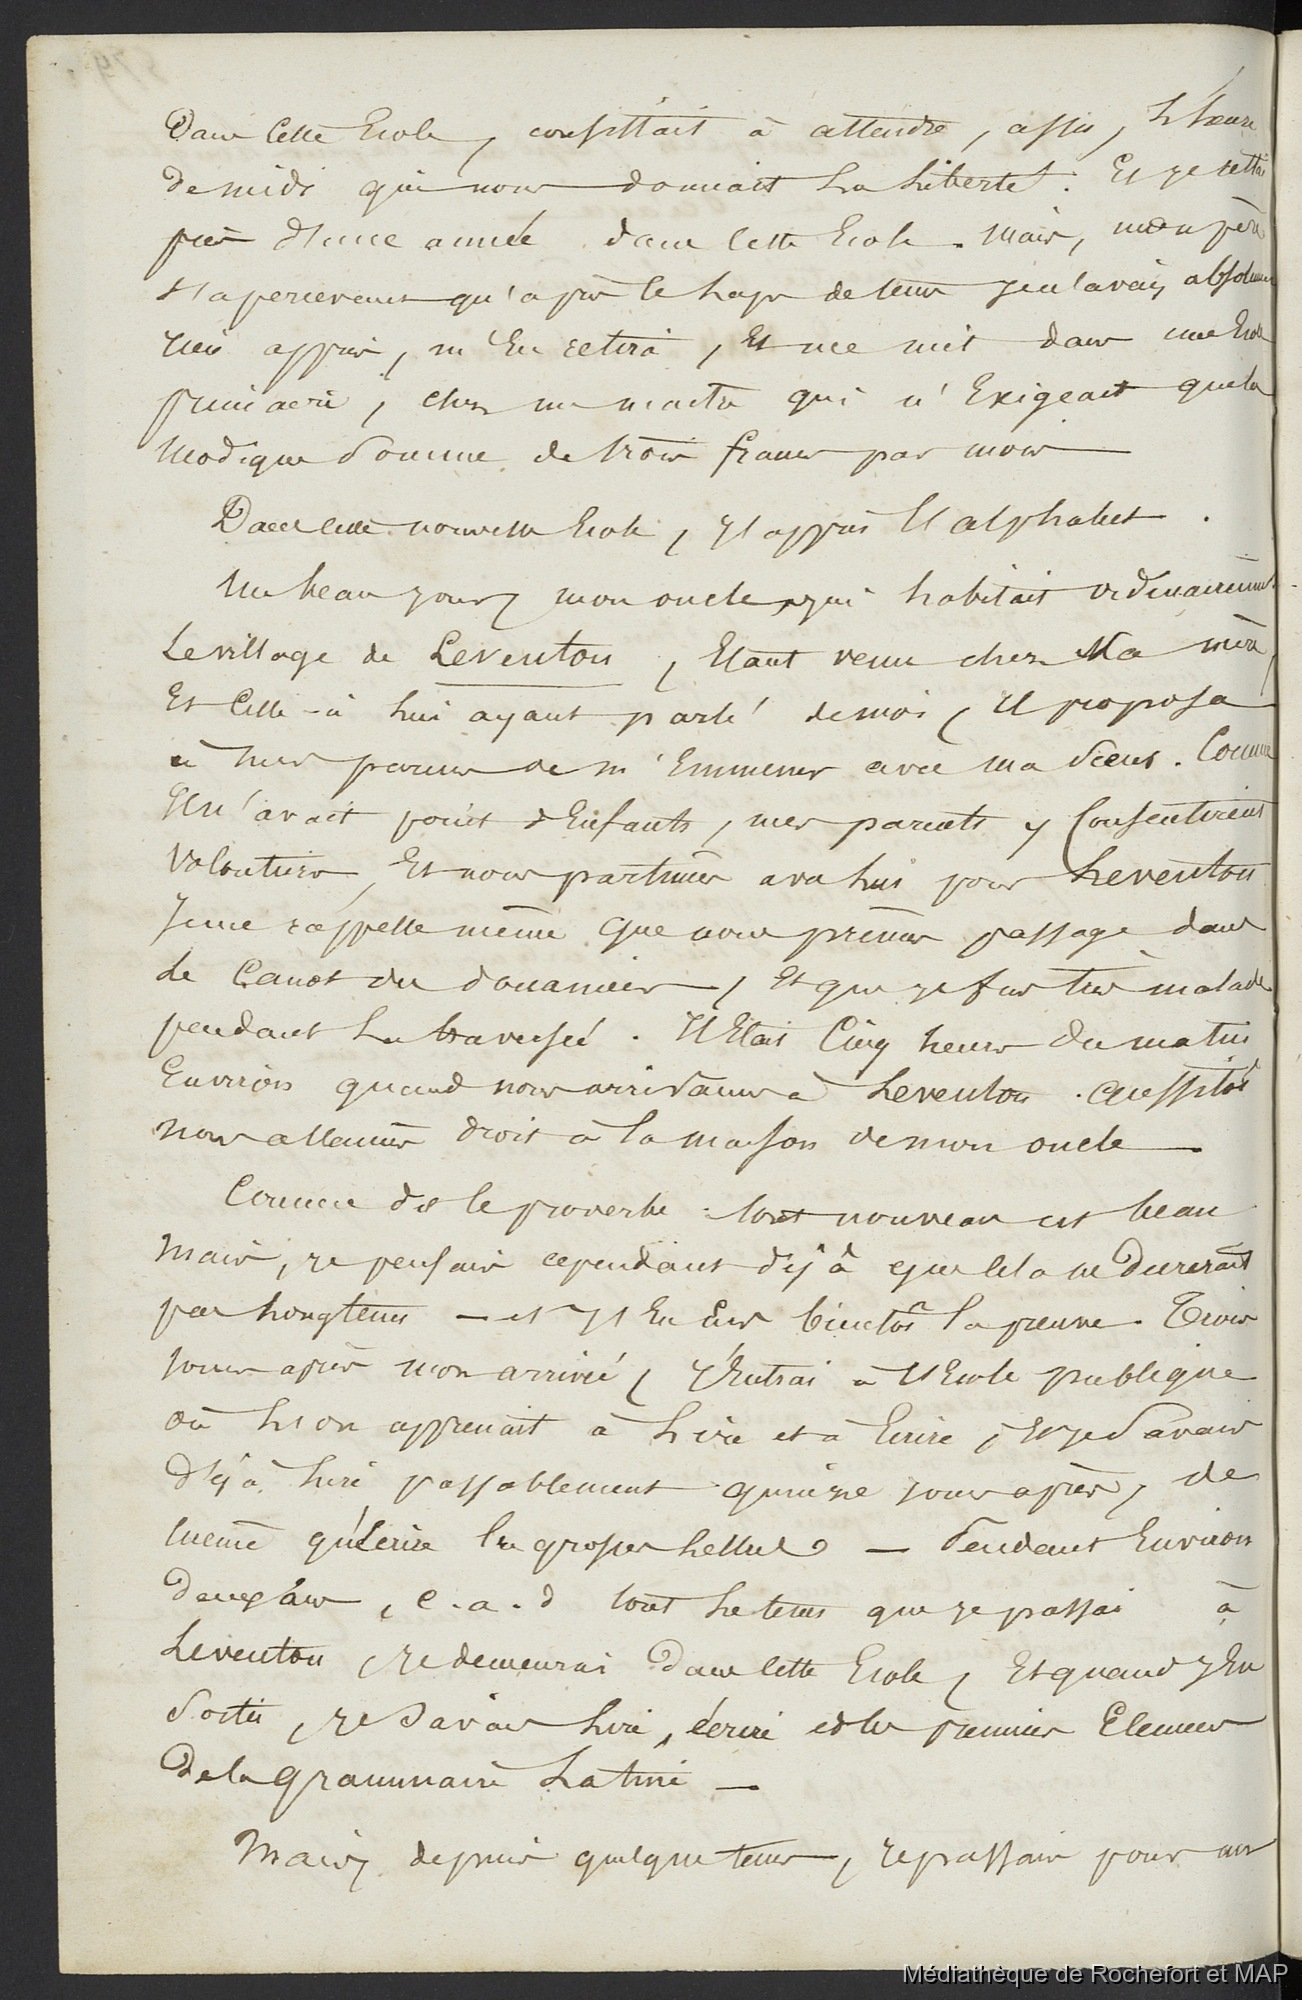 Dans Cette Ecole, consistait à attendre, assis, L'heure
de midi qui nous donnait La Liberté. Et je restai
près d'une année dans Cette Ecole. Mais, mon père
s'apercevant qu'après le Laps de tems je n'avais absolument
rien appris, m'En retira, Et me mit dans une Ecole
primaire, chez un maitre qui n'Exigeait que la
modique Somme de trois francs par mois —
Dans Cette nouvelle Ecole, j'appris l'alphabet.
Un beau jour, mon oncle qui habitait ordinairement
Le village de Leventon, Etant venu chez Ma mère,
Et Celle-ci Lui ayant parlé de moi, Il proposa
à mes parens de m'Emmener avec ma Soeur. Comme
Il n'avait point d'Enfants, mes parents y Consentirent
Volontiers, Et nous partimes avec Lui pour Leventon
Je me rappelle même que nous prîmes passage dans
Le Canot du douanier, Et que je fus très malade
pendant La traversée. Il Etait Cinq heures du matin
Environ quand nous arrivâmes à Leventon. Aussitôt
nous allames droit à la maison de mon oncle —
Comme dit le proverbe : tout nouveau est beau
Mais, je pensais cependant déjà que Cela ne Durerait
pas Longtems — et j'En Eus bientôt la preuve. Trois
jours après mon arrivée, j'Entrai à l'Ecole publique
où L'on apprenait à Lire et à Ecrire, Et je Savais
déjà Lire passablement quinze jours après, de
même qu'Ecrire les grosses Lettres — Pendant Environ
deux ans, c.a.d tout Le tems que je passai à
Leventon, je demeurai dans Cette Ecole, Et quand j'En
Sortis, je Savais Lire, écrire et les premiers Elemens
de la grammaire Latine —
Mais, depuis quelque tems, je passais pour un
Médiathèque de Rochefort et MAP